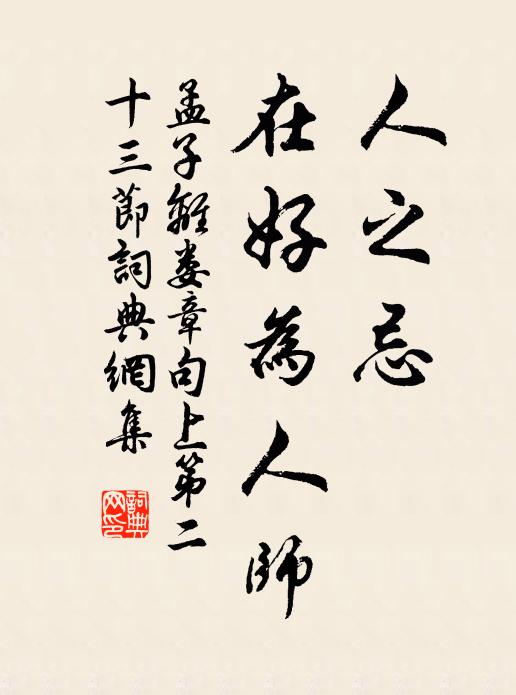 人之忌
在好為人師
孟子離娄章句上第二
十三節詞典網集
詞典
网印